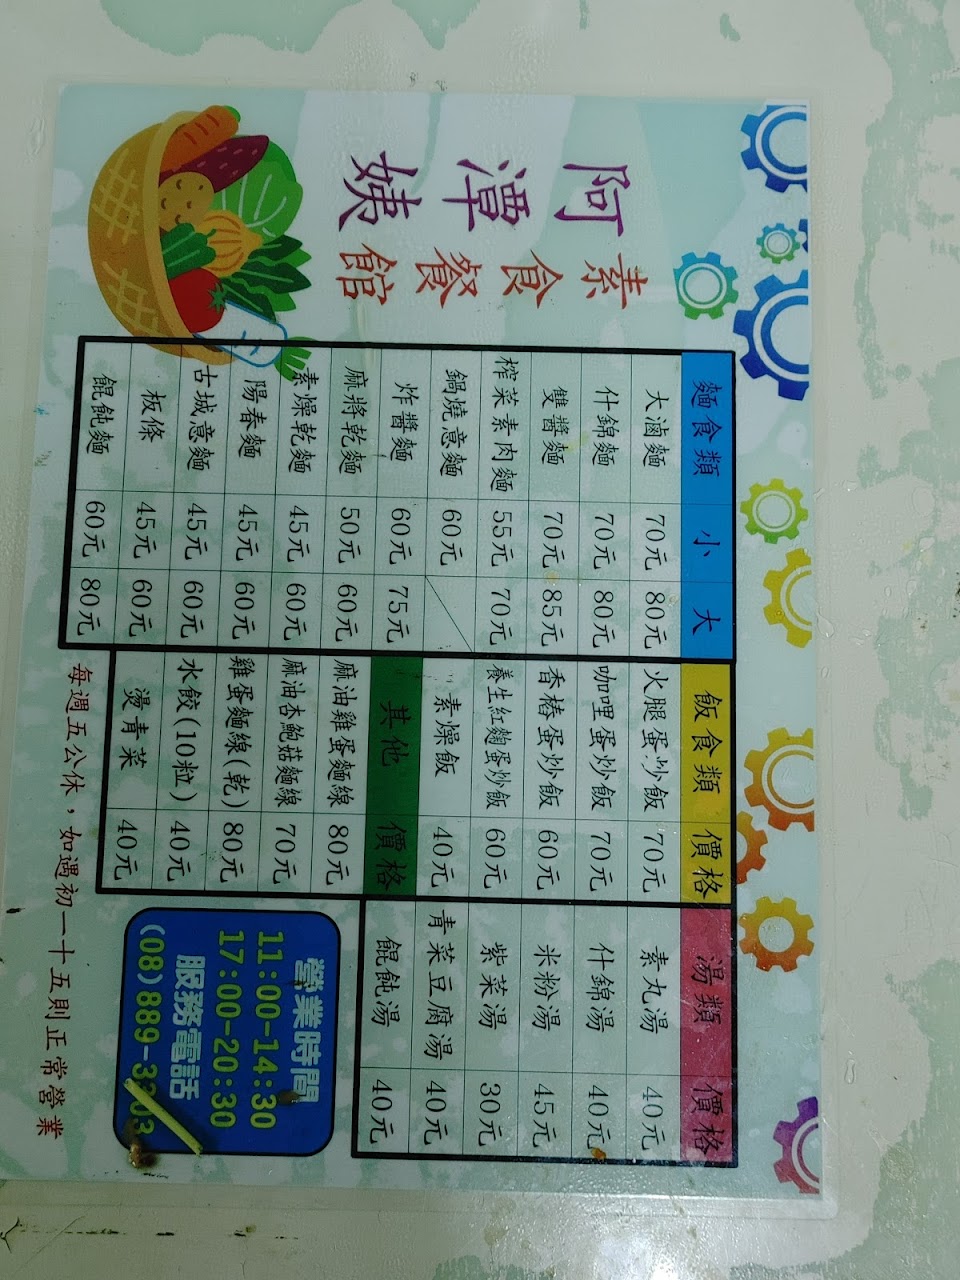 阿潭姨
素食餐館
麵食類 小 大
大滷麵 70元 80元
什錦麵 70元 80元
雙醬麵 70元 85元
榨菜素肉麵 55元 70元
鍋燒意麵 60元
炸醬麵 60元 75元
麻將乾麵 50元 60元
素燥乾麵 45元 60元
陽春麵 45元 60元
古城意麵 45元 60元
板條 45元 60元
餛飩麵 60元 80元
飯食類 價格
火腿蛋炒飯 70元
咖哩蛋炒飯 70元
香椿蛋炒飯 60元
養生紅麴蛋炒飯 60元
素燥飯 40元
其他 價格
麻油雞蛋麵線 80元
麻油杏鮑菇麵線 70元
雞蛋麵線(乾) 80元
水餃(10粒) 40元
燙青菜 40元
湯類 價格
素丸湯 40元
什錦湯 40元
米粉湯 45元
紫菜湯 30元
青菜豆腐湯 40元
餛飩湯 40元
營業時間
11:00-14:30
17:00-20:30
服務電話
(08)889-3
每週五公休，如遇初一十五則正常營業